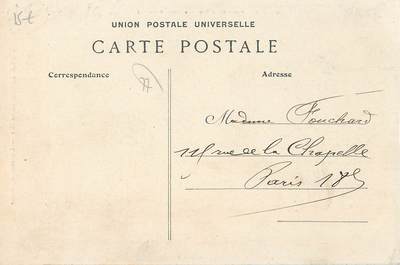 15€
UNION POSTALE UNIVERSELLE
CARTE POSTALE
Correspondance
Adresse
77
Madame Fouchard
11 rue de la Chapelle
Paris 18e